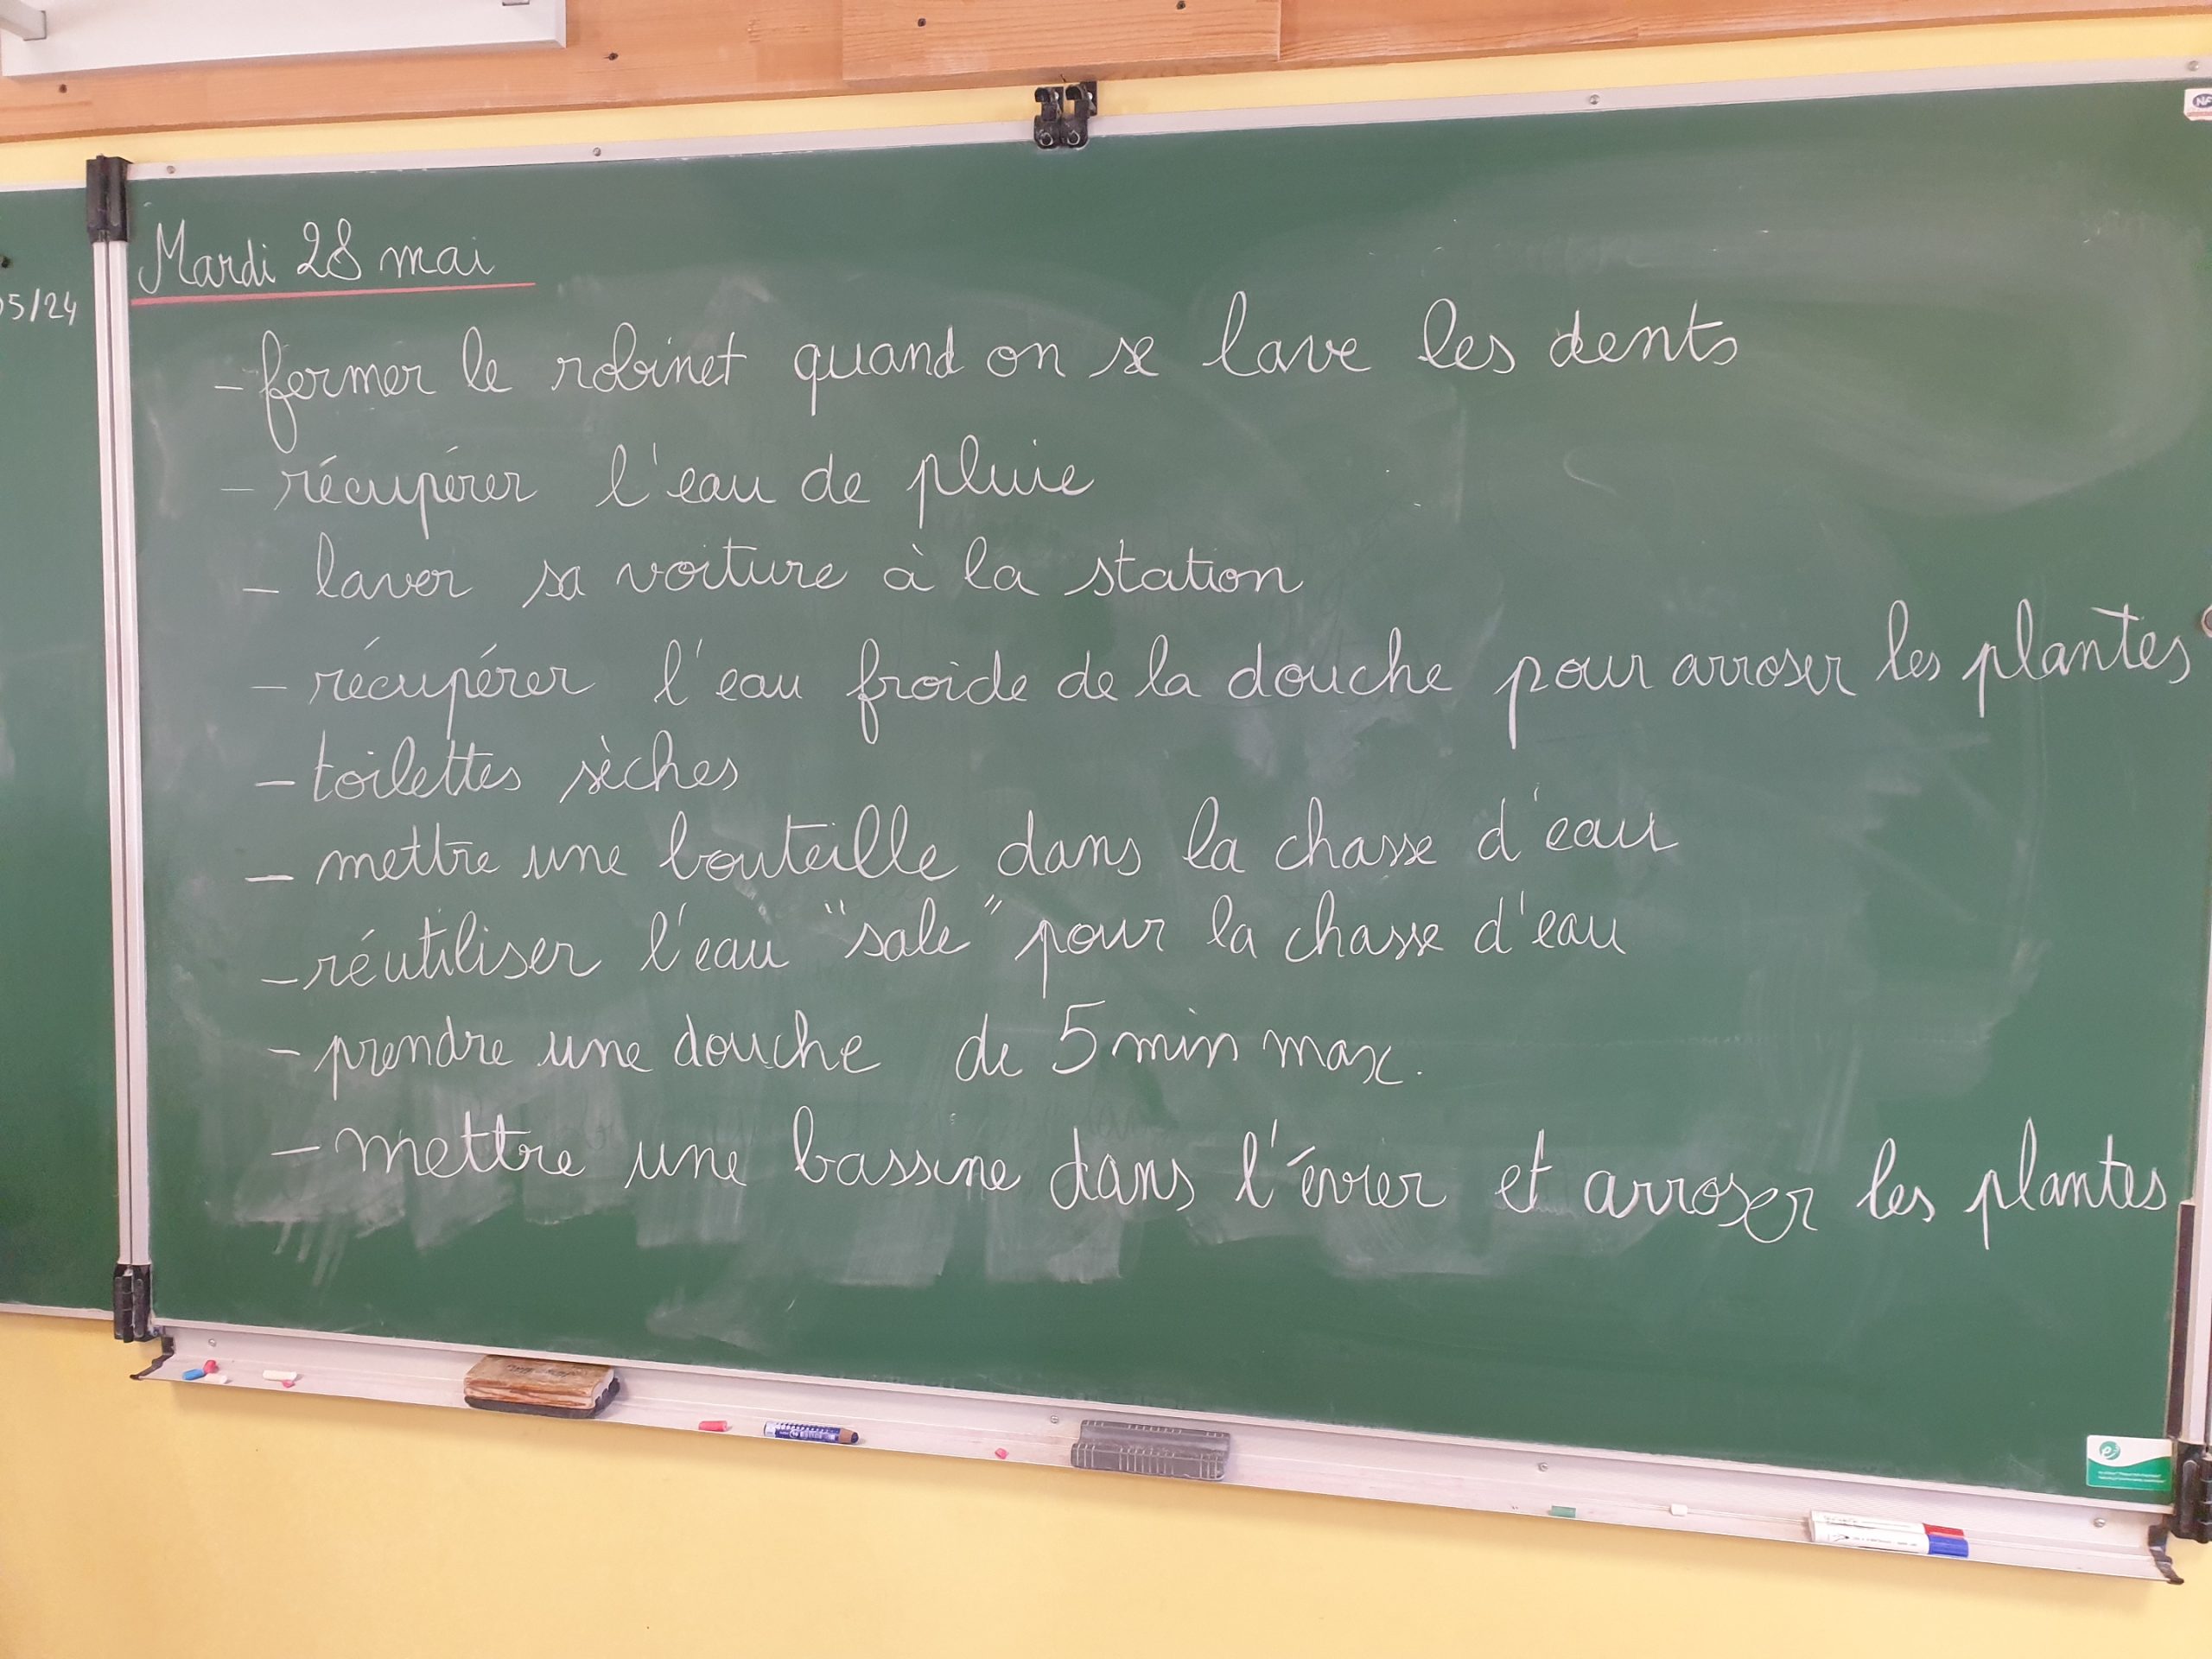 05/24
Mardi 28 mai
- fermer le robinet quand on se lave les dents
- récupérer l'eau de pluie
- laver sa voiture à la station
- récupérer l'eau froide de la douche pour arroser les plantes
- toilettes sèches
- mettre une bouteille dans la chasse d'eau
- réutiliser l'eau "sale" pour la chasse d'eau
- prendre une douche de 5 min max.
- mettre une bassine dans l'évier et arroser les plantes
NF